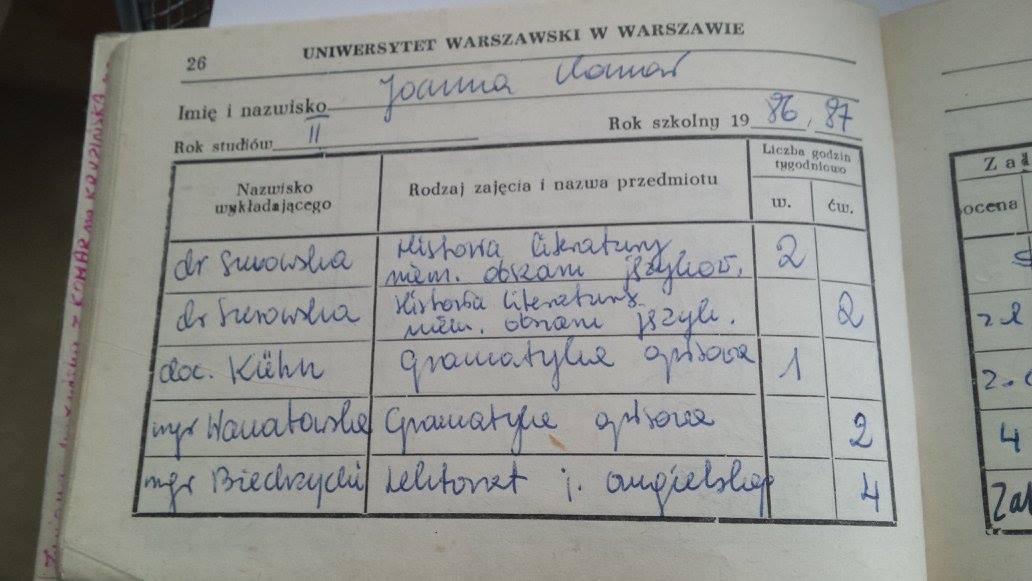 26
UNIWERSYTET WARSZAWSKI W WARSZAWIE
Imię i nazwisko Joanna Komar
Rok studiów II
Rok szkolny 19 86/87
Nazwisko wykładającego
Rodzaj zajęcia i nazwa przedmiotu
Liczba godzin tygodniowo
w.
ćw.
dr Surowska
Historia literatury
niem. obszaru językow.
2
dr Surowska
Historia literatury
niem. obszaru język.
2
doc. Kühn
Gramatyka opisowa
1
mgr Wanatowska
Gramatyka opisowa
2
mgr Biedrzycki
Lektorat j. angielskiego
4
ocena
4
Zal
z KOMAR na KRUZIŃSKA